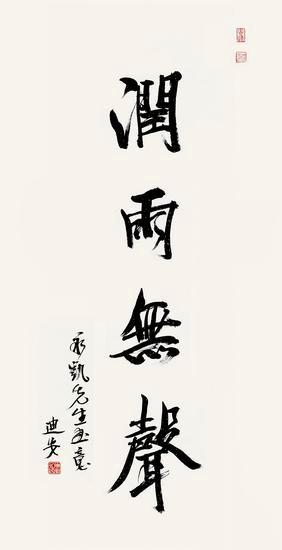 潤雨無聲
永凱先生正意
迪安